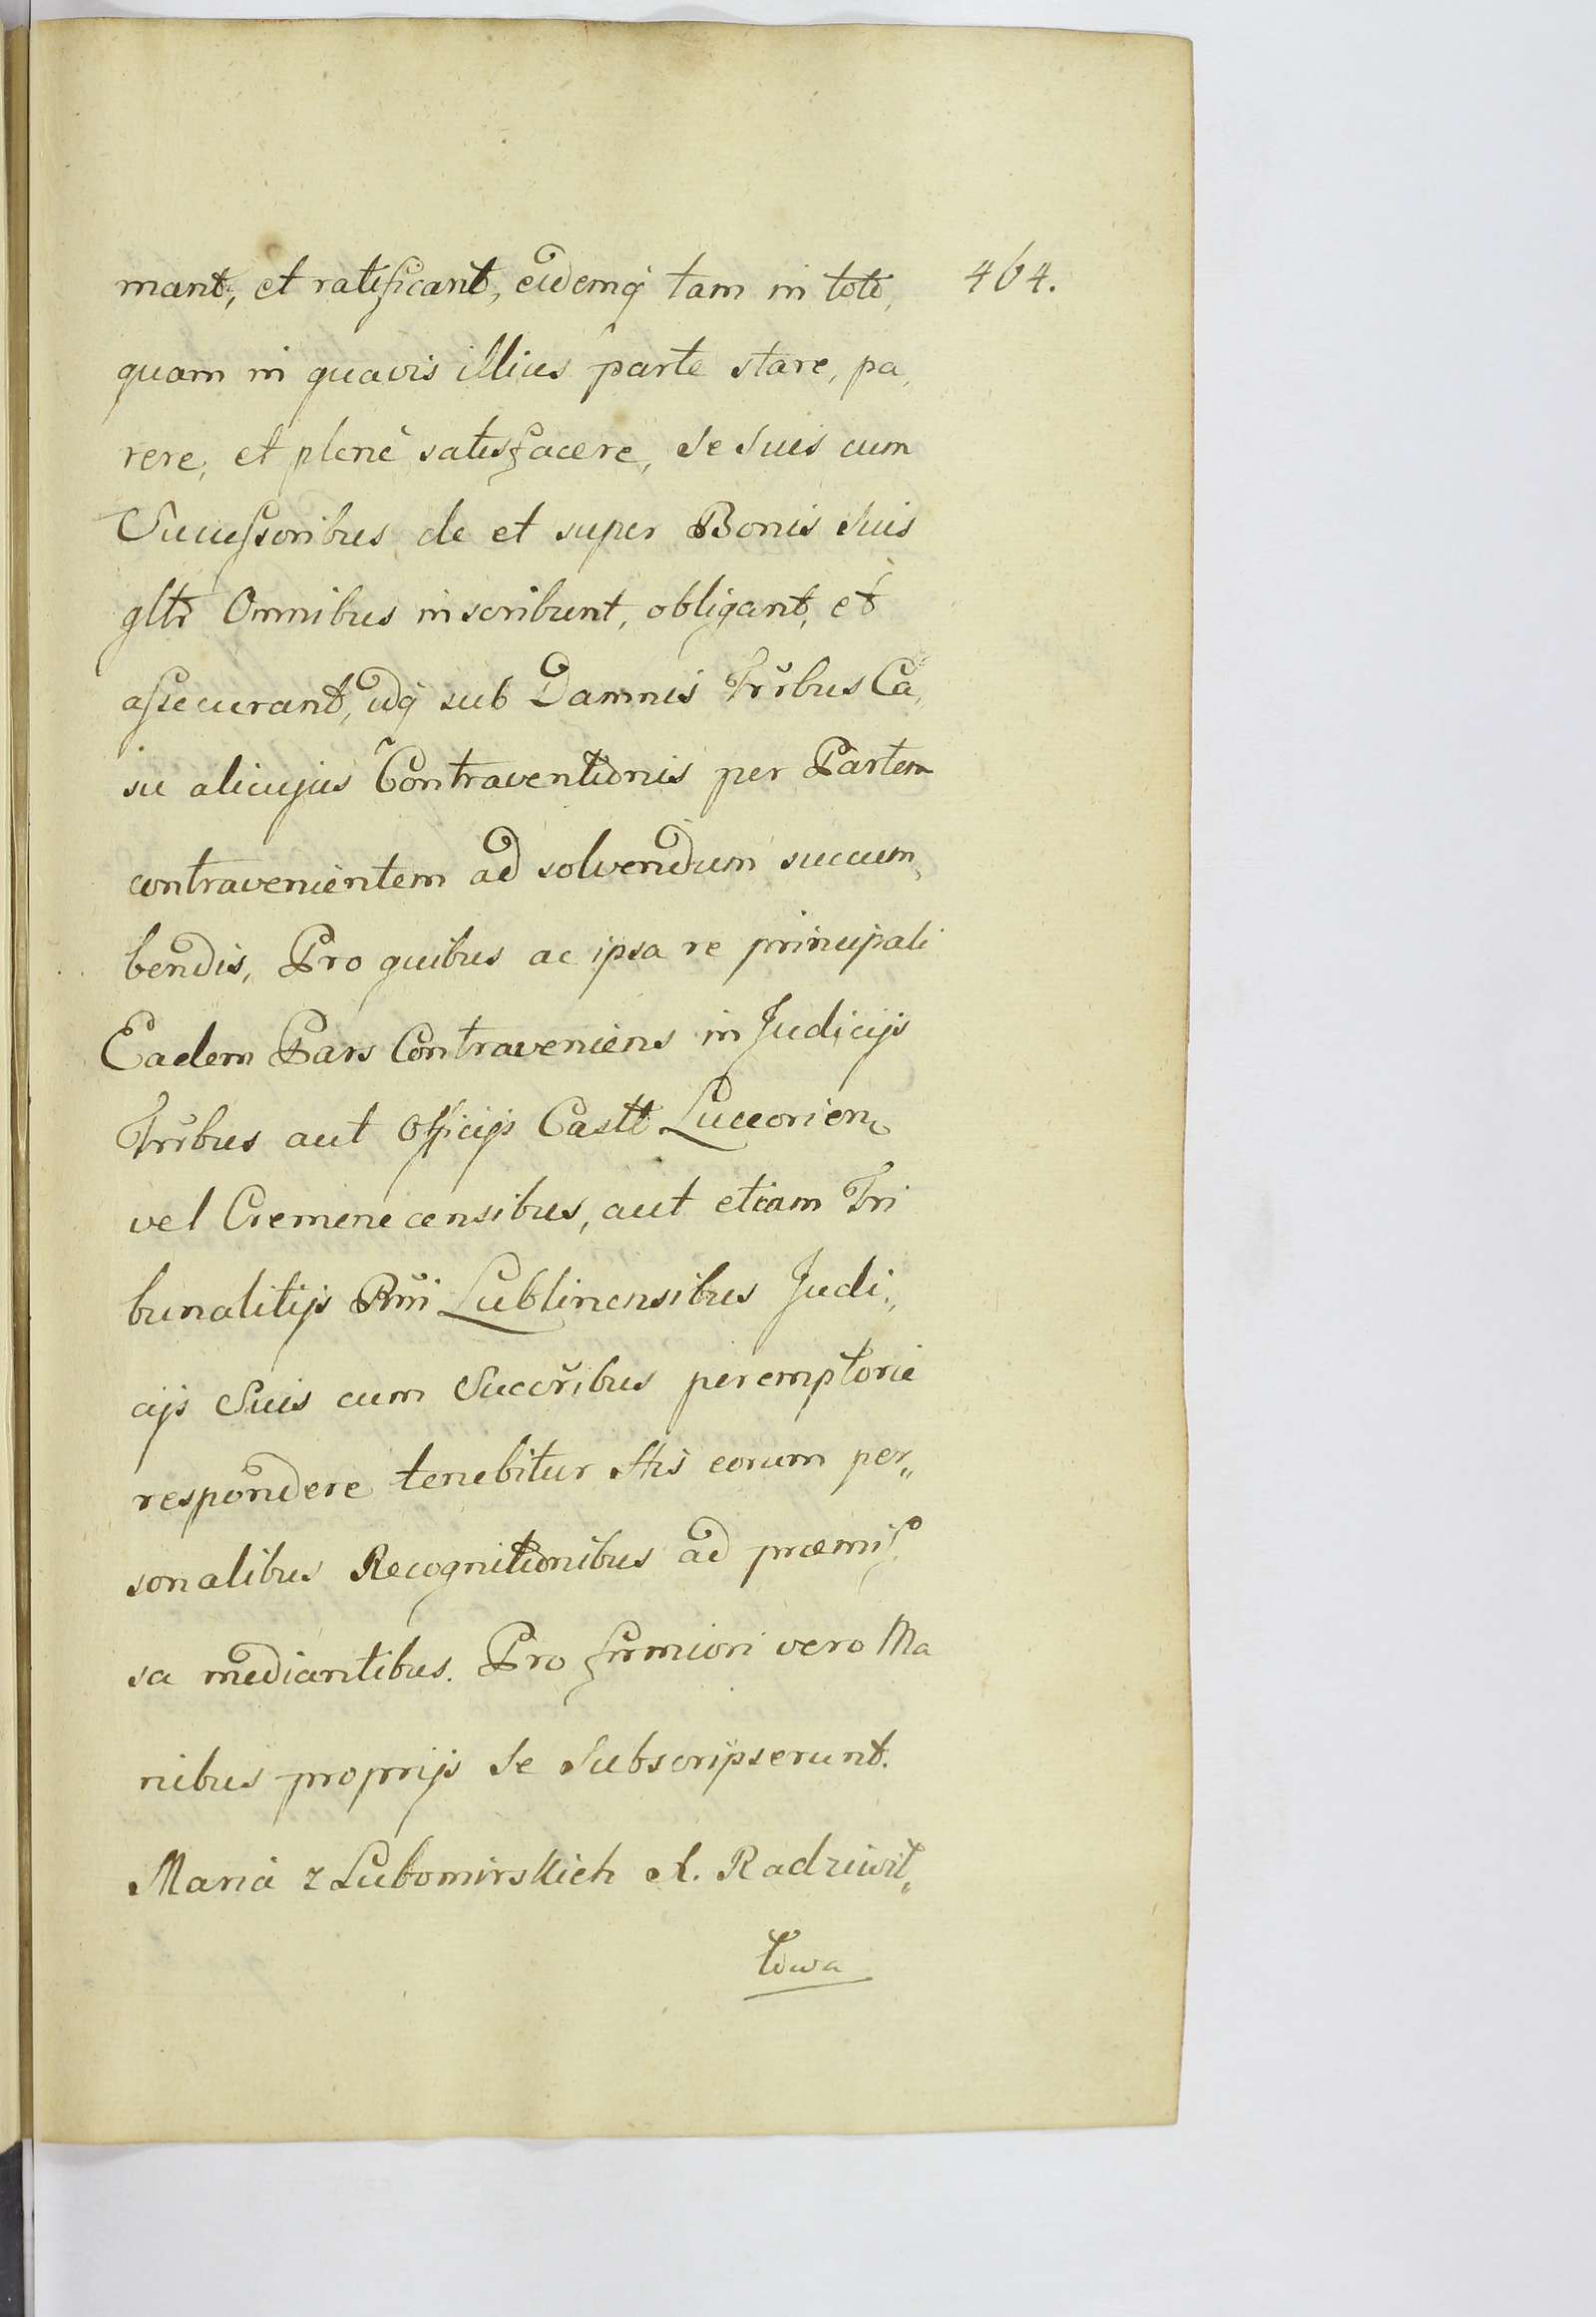 mant, et ratificant, eidemq̃ tam in toto, 464.
quam in quavis illius parte stare, pa,
rere, et plenè satisfacere, se suis cum
Sucessoribus de et super Bonis suis
gltr Omnibus inscribunt, obligant, et
assecurant, idq̃ sub Damnis Trr̃bus Ca,
su alicujus Contraventionis per Partem
contravenientem ad solvendum succum,
bendis, Pro quibus ac ipsa re principali
Eadem Pars Contraveniens in Judicijs
Trr̃bus aut Officijs Castt Luceorien,
vel Cremenecensibus, aut etiam Tri
bunalitijs Rñi Lublinensibus Judi,,
cijs Suis cum Succr̃ibus peremptorie
respondere tenebitur His eorum per,,
sonalibus Recognitionibus ad præmis,
sa mediantibus. Pro firmiori vero Ma
nibus proprijs se Subscripserunt.
Maria z Lubomirskich X. Radziwił,,
łowa